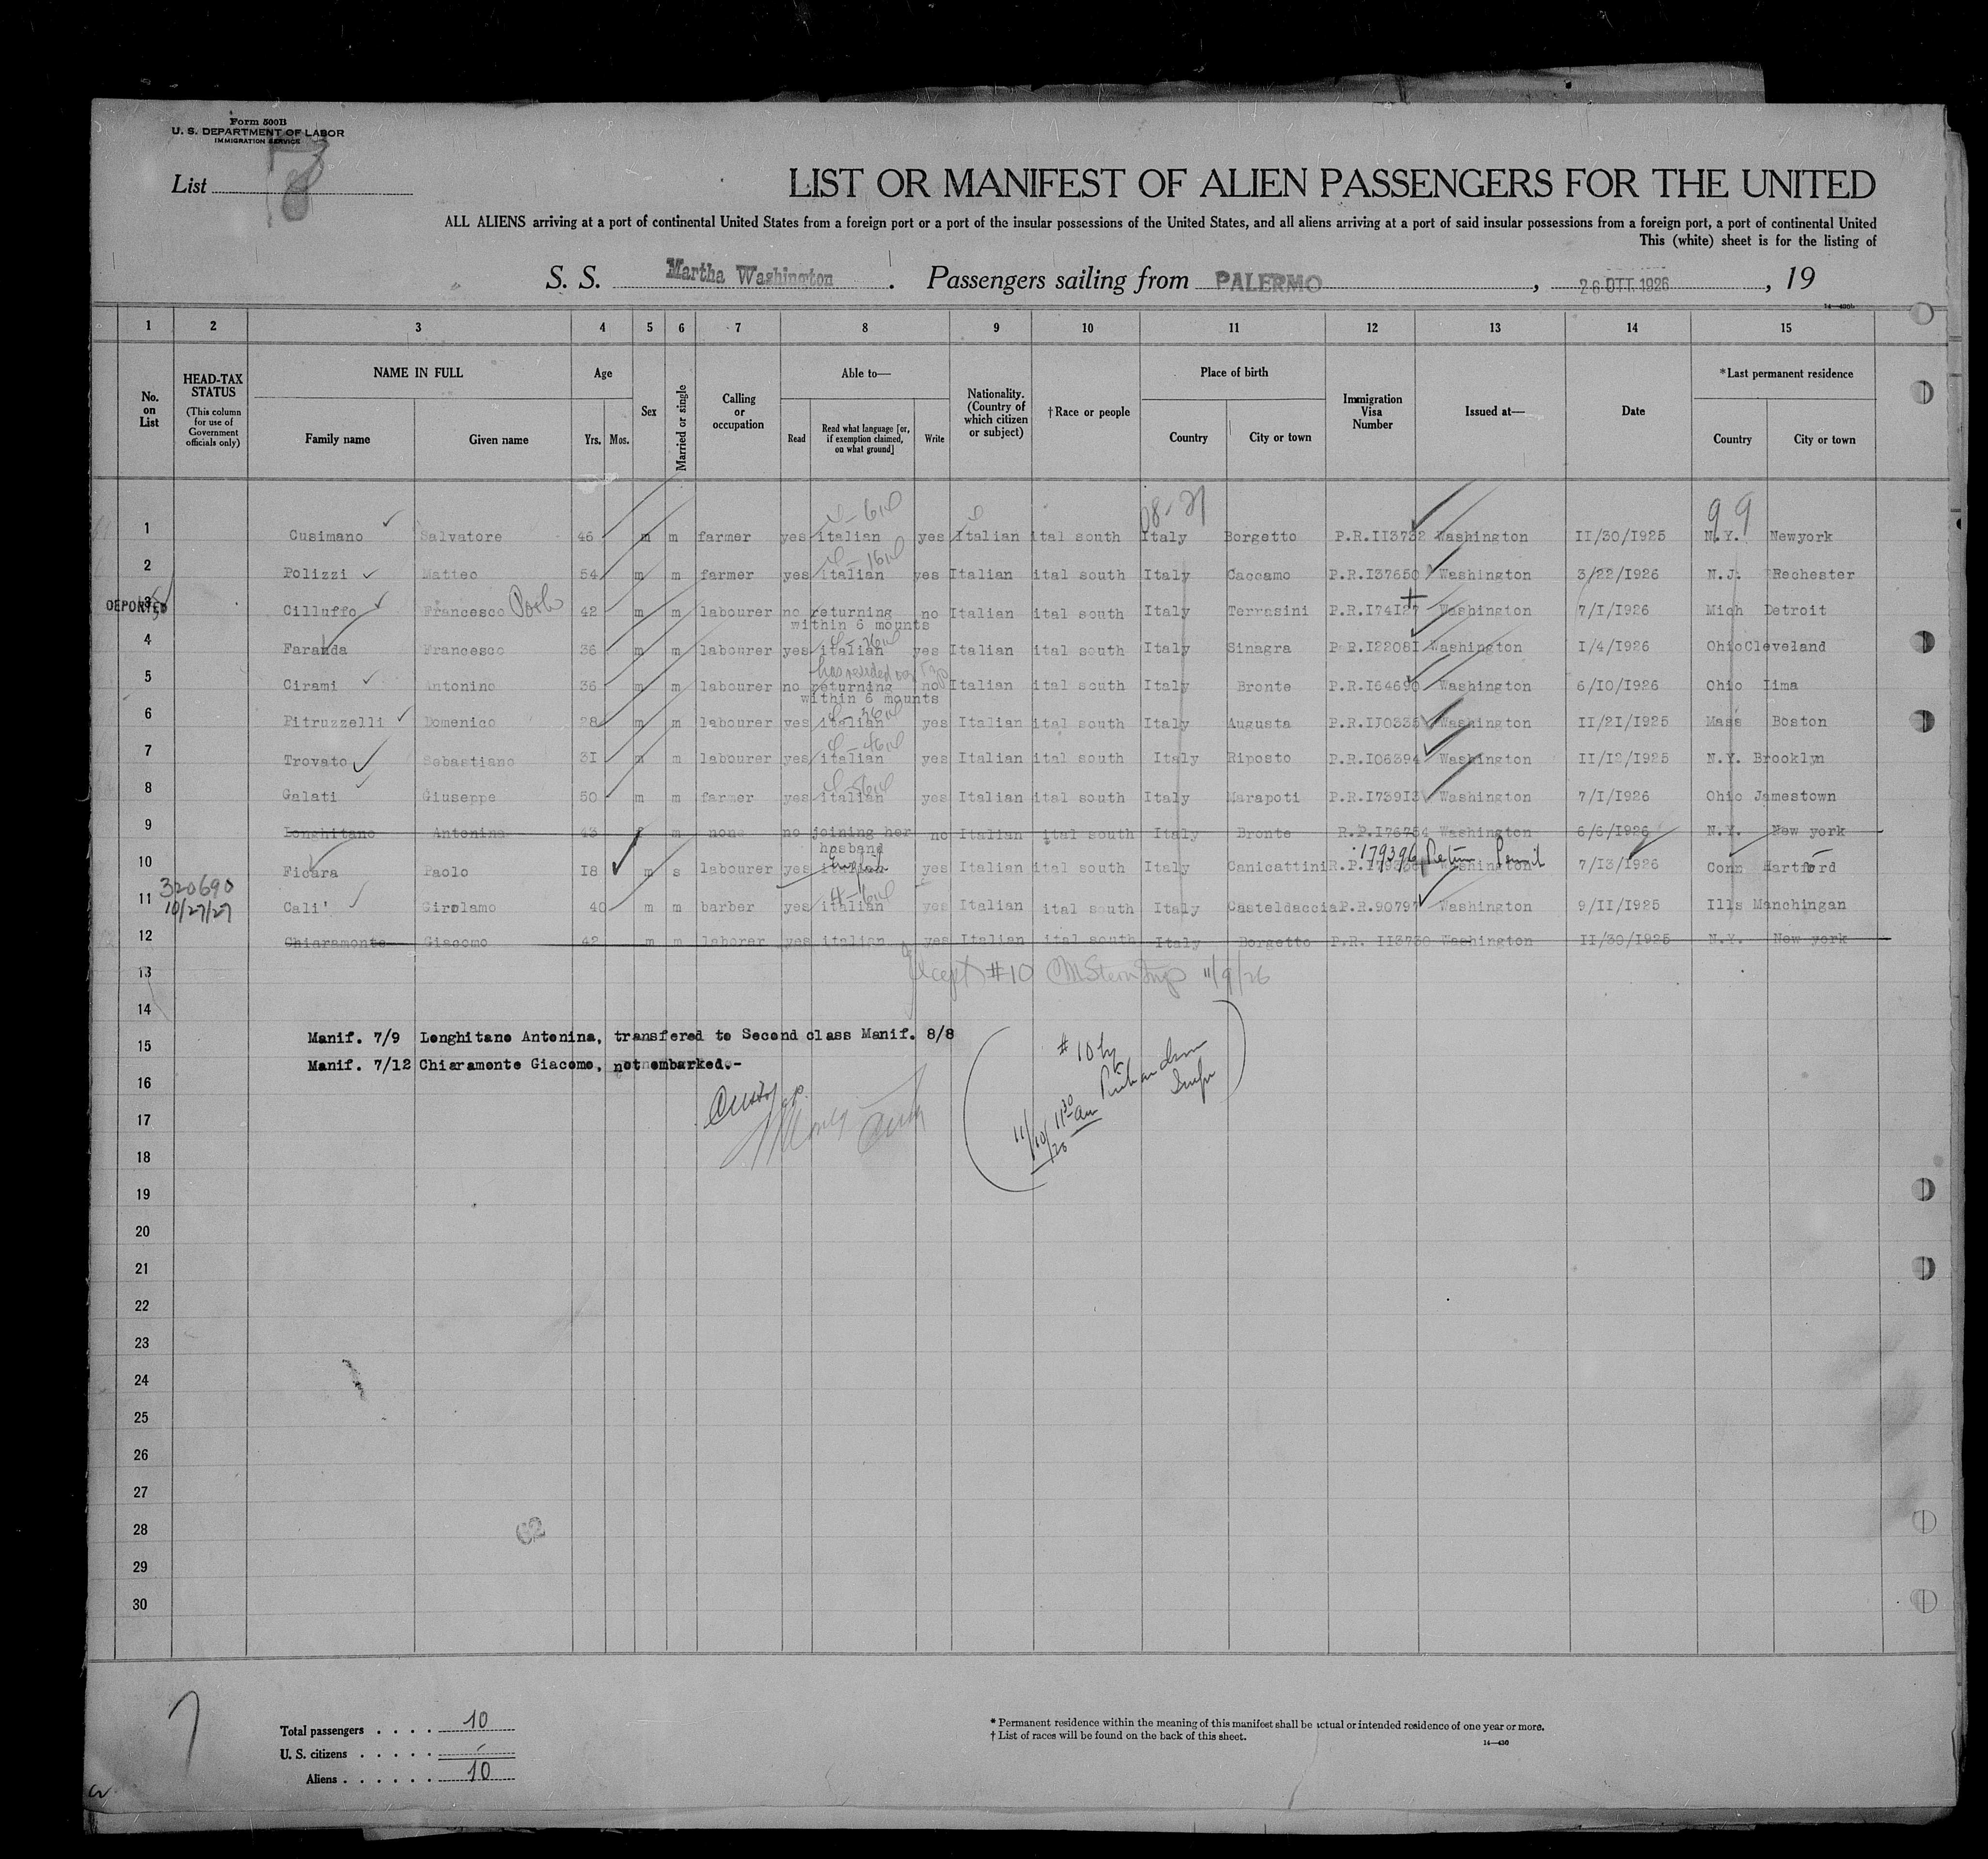 Form 500B
U. S. DEPARTMENT OF LABOR
IMMIGRATION SERVICE
List 8
LIST OR MANIFEST OF ALIEN PASSENGERS FOR THE UNITED
ALL ALIENS arriving at a port of continental United States from a foreign port or a port of the insular possessions of the United States, and all aliens arriving at a port of said insular possessions from a foreign port, a port of continental United
This (white) sheet is for the listing of
S. S. Martha Washington. Passengers sailing from PALERMO, 26 OTT. 1926, 19
1 2 3 4 5 6 7 8 9 10 11 12 13 14 15
No. on List
HEAD-TAX STATUS (This column for use of Government officials only)
NAME IN FULL
Family name Given name
Age
Yrs. Mos.
Sex
Married or single
Calling or occupation
Able to—
Read
Read what language [or, if exemption claimed, on what ground]
Write
Nationality. (Country of which citizen or subject)
†Race or people
Place of birth
Country City or town
Immigration Visa Number
Issued at—
Date
*Last permanent residence
Country City or town
08-21 99
1 Cusimano Salvatore 46 m m farmer yes italian yes Italian ital south Italy Borgetto P.R.II3732 Washington II/30/I925 N.Y. Newyork
2 Polizzi Matteo 54 m m farmer yes italian yes Italian ital south Italy Caccamo P.R.I37650 Washington 3/22/I926 N.J. Rechester
DEPORTED
3 Cilluffo Francesco 42 m m labourer no returning no Italian ital south Italy Terrasini P.R.I74I27 Washington 7/I/I926 Mich Detroit
within 6 mounts
4 Faranda Francesco 36 m m labourer yes italian yes Italian ital south Italy Sinagra P.R.I2208I Washington I/4/I926 Ohio Cleveland
5 Cirami Antonino 36 m m labourer no returning no Italian ital south Italy Bronte P.R.I64690 Washington 6/I0/I926 Ohio Iima
within 6 mounts
6 Pitruzzelli Domenico 28 m m labourer yes italian yes Italian ital south Italy Augusta P.R.IJ0335 Washington II/2I/I925 Mass Boston
7 Trovato Sebastiano 3I m m labourer yes italian yes Italian ital south Italy Riposto P.R.I06394 Washington II/I2/I925 N.Y. Brooklyn
8 Galati Giuseppe 50 m m farmer yes italian yes Italian ital south Italy Marapoti P.R.I739I3 Washington 7/I/I926 Ohio Jamestown
9 Longhitano Antonina 43 f m none no joining her no Italian ital south Italy Bronte R.P.I76754 Washington 6/6/I926 N.Y. New york
husband
179396 Return Permit
10 Ficara Paolo I8 m s labourer yes italian yes Italian ital south Italy Canicattini R.P. Washington 7/I3/I926 Conn Hartford
320690
10/27/27
11 Cali' Girolamo 40 m m barber yes italian yes Italian ital south Italy Casteldaccia P.R.90797 Washington 9/II/I925 Ills Manchingan
12 Chiaramonte Giacomo 42 m m laborer yes italian yes Italian ital south Italy Borgetto P.R. II3730 Washington II/30/I925 N.Y. New york
13 Except #10 11/9/26
14
Manif. 7/9 Longhitano Antonina, transfered to Second class Manif. 8/8
15
Manif. 7/12 Chiaramonte Giacomo, not embarked.-
# 10 by
16
17
11/10/26 11 30 am
18
19
20
21
22
23
24
25
26
27
28
62
29
30
7
Total passengers . . . . 10
U. S. citizens . . . . .
Aliens . . . . . . 10
* Permanent residence within the meaning of this manifest shall be actual or intended residence of one year or more.
† List of races will be found on the back of this sheet.
14—430